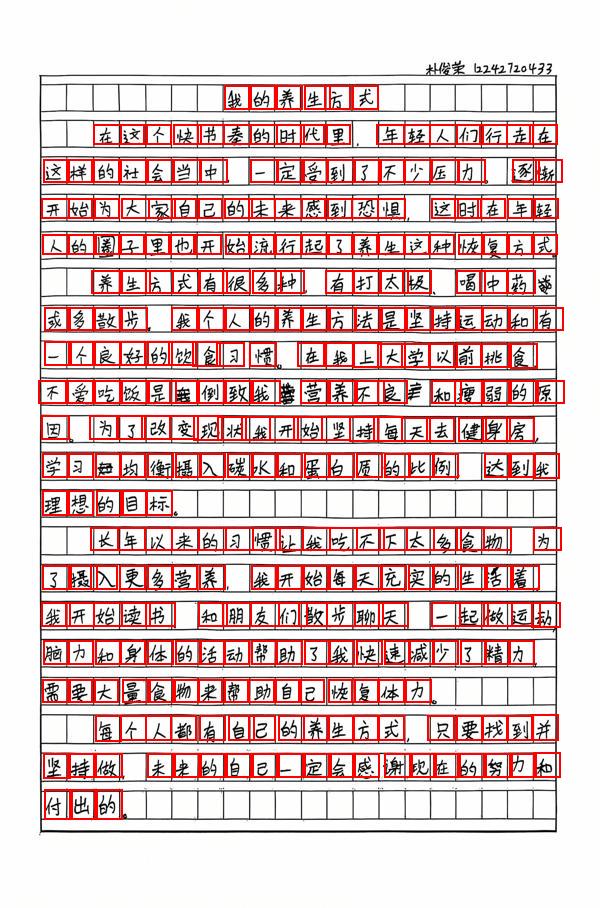 朴俊荣 12242720433
我的养生方式
在这个快节奏的时代里，年轻人们行走在
这样的社会当中，一定受到了不少压力。逐渐
开始为大家自己的未来感到恐惧，这时在年轻
人的圈子里也开始流行起了养生这种恢复方式。
养生方式有很多种，有打太极、喝中药
或多散步。我个人的养生方法是坚持运动和有
一个良好的饮食习惯。在我上大学以前挑食
不爱吃饭是 倒致我 营养不良 和瘦弱的原
因。为了改变现状我开始坚持每天去健身房，
学习 均衡摄入碳水和蛋白质的比例，达到我
理想的目标。
长年以来的习惯让我吃不下太多食物，为
了摄入更多营养，我开始每天充实的生活着，
我开始读书，和朋友们散步聊天，一起做运动，
脑力和身体的活动帮助了我快速减少了精力，
需要大量食物来帮助自己恢复体力。
每个人都有自己的养生方式，只要找到并
坚持做，未来的自己一定会感谢现在的努力和
付出的。